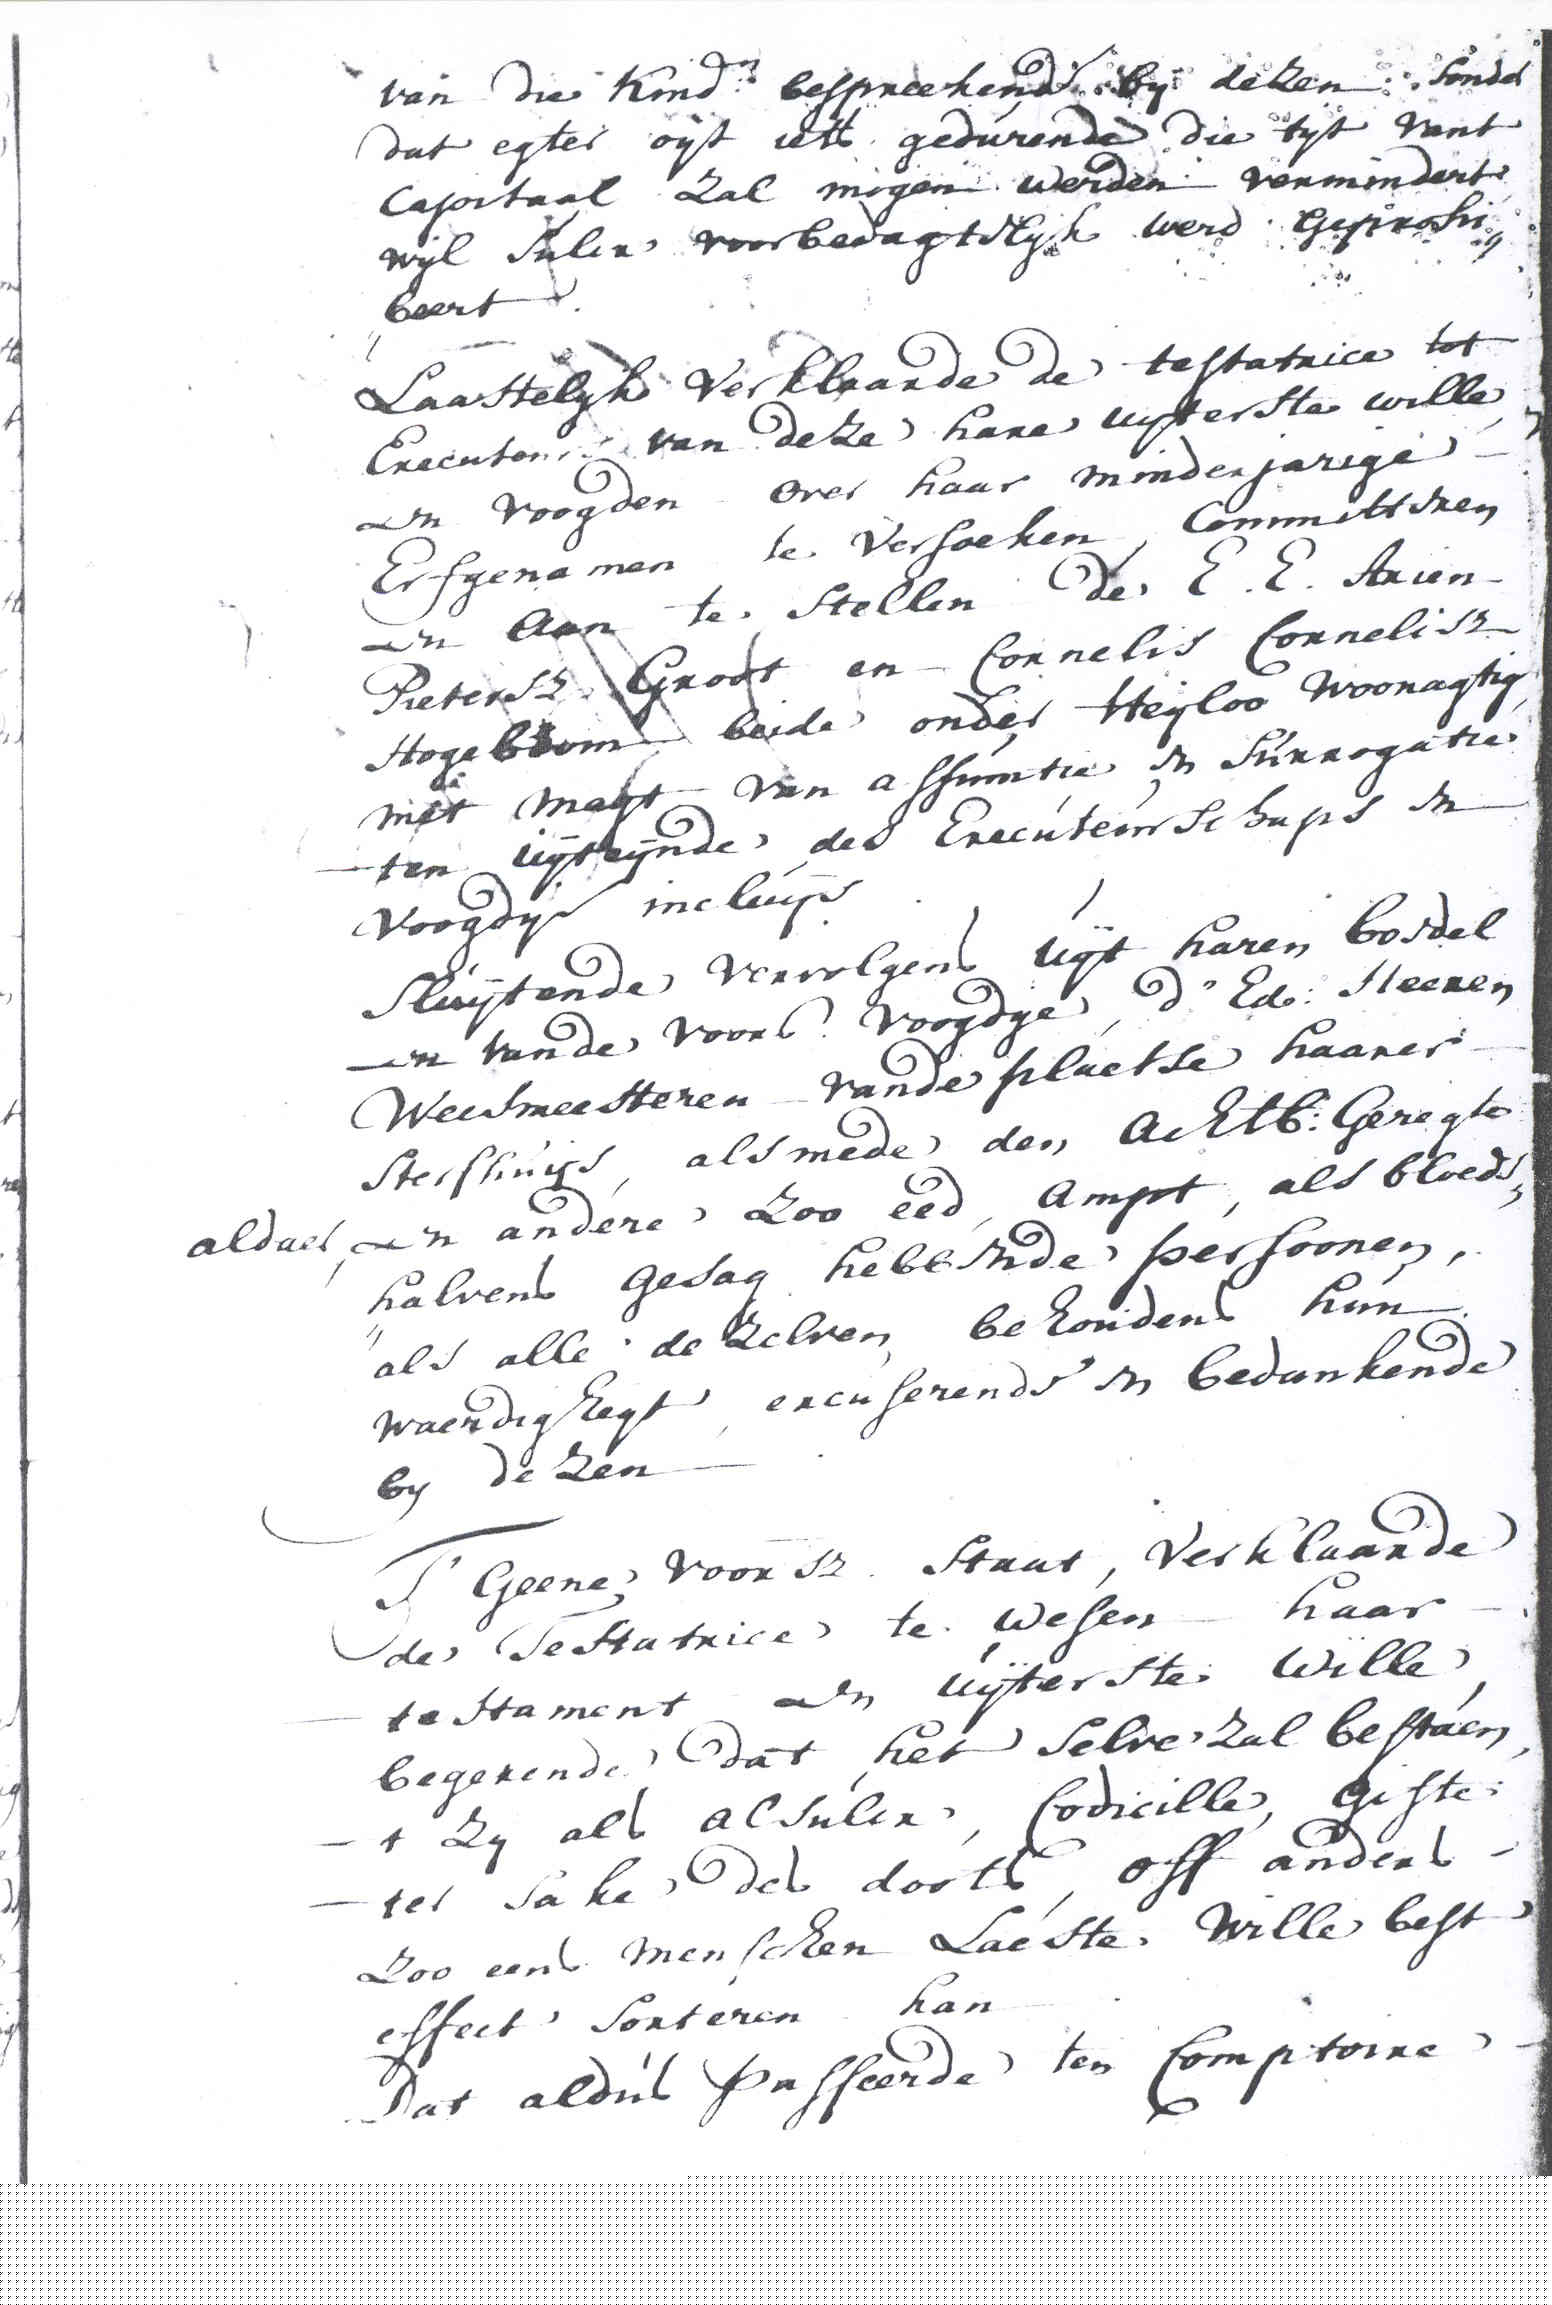 van die Kind.rn bespreekende by dezen: Sonder
dat egter oyt iets gedurende die tyt vant
Capitaal zal mogen werden vermindert
wyl sulcx voorbedagtelyk werd geprohi„
„beert.
Laastelyk Verklaarde de testatrice tot
Executeurs van deze hare uyterste wille,
en voogden over haar minderjarige
Erfgenamen te Versoeken, Committeren
en aan te stellen de E. E. Arien
Pietersz. Groot en Cornelis Cornelisz
Hogeboom beide onder Heyloo woonagtig,
met magt van assumtie en surrogatie
ten uyteynde des Executeurschaps en
voogdys incluys
Sluytende vervolgens uyt haren boedel
en vande voors. voogdye, d' Ed: Heeren
Weesmeesteren vande plaetse haarer
sterfhuys, alsmede den Achtb: Geregte
aldaer, en andere zoo eed, ampt, als bloeds„
„halvens gesag hebbende persoonen,
als alle dezelven, behoudens hun
waerdigheyt, excuserende en bedankende
by dezen
T Geene voorsz. Staat, Verklaarde
de Testatrice te wesen haar
testament en uyterste wille,
begerende dat het selve zal bestaen,
t zy als alsulcx, Codicille, gifte
ter sake des doots, off anders
zoo eens menschen Laeste Wille best
effect sorteren kan
Dat aldus passeerde ten Comptoire